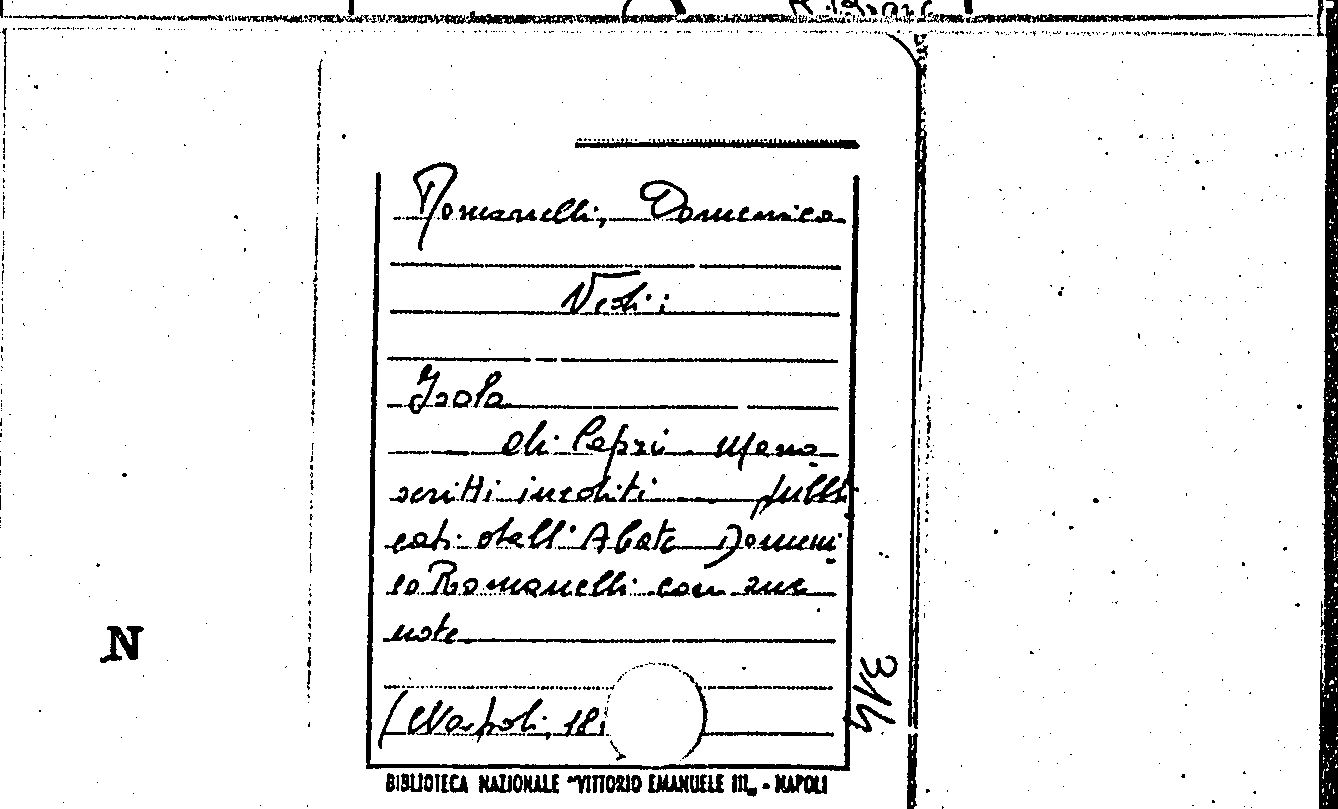 Romanelli, Domenico
Vedi:
Isola
di Capri Mano
scritti inediti pubbli
cati dall'Abate Domeni
co Romanelli con sue
note
(Napoli, 181
314
N
BIBLIOTECA NAZIONALE "VITTORIO EMANUELE III„ - NAPOLI